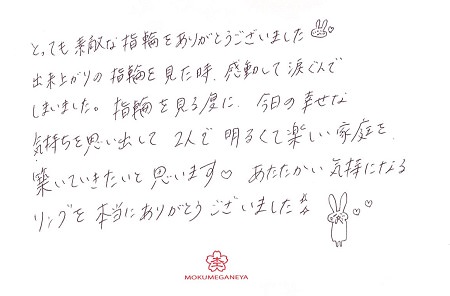 とっても素敵な指輪をありがとうございました
出来上がりの指輪を見た時、感動して涙ぐんで
しまいました。指輪を見る度に、今日の幸せな
気持ちを思い出して2人で明るくて楽しい家庭を
築いていきたいと思います♡ あたたかい気持になる
リングを本当にありがとうございました!!
MOKUMEGANEYA